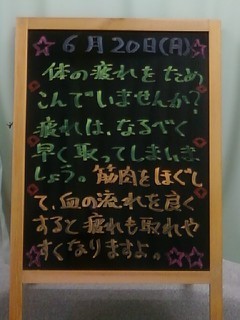 6月20日(月)
体の疲れをため
こんでいませんか?
疲れは、なるべく
早く取ってしまいま
しょう。筋肉をほぐし
て、血の流れを良く
すると疲れも取れや
すくなりますよ。